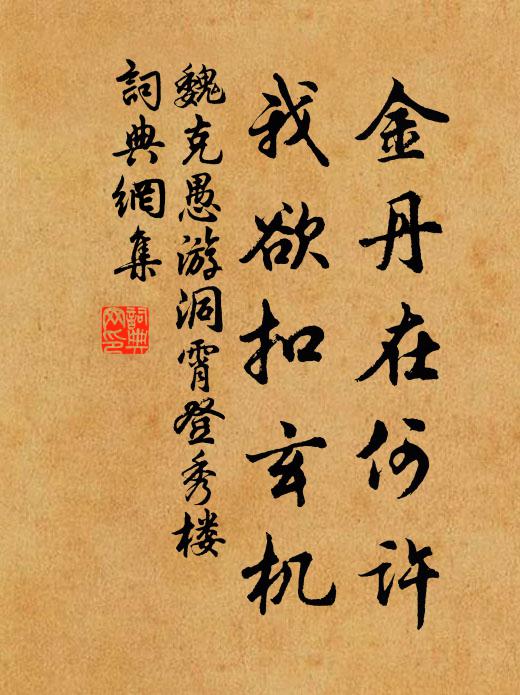 金丹在何许
我欲扣玄机
魏克愚游洞霄登秀楼
詞典網集
詞典网印